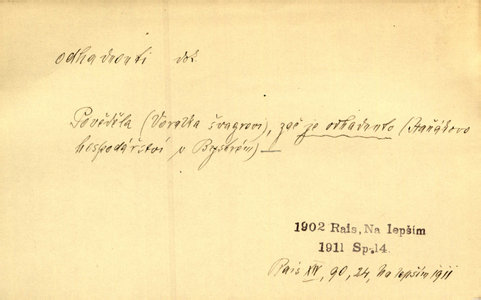 odhadnouti dok.
Pověděla (Voralka švagrovi), zač je odhadnuto (Staňákovo
hospodářství v Bystrém) —
1902 Rais, Na lepším
1911 Sp. 14.
Rais XIV, 90, 24, Na lepším 1911